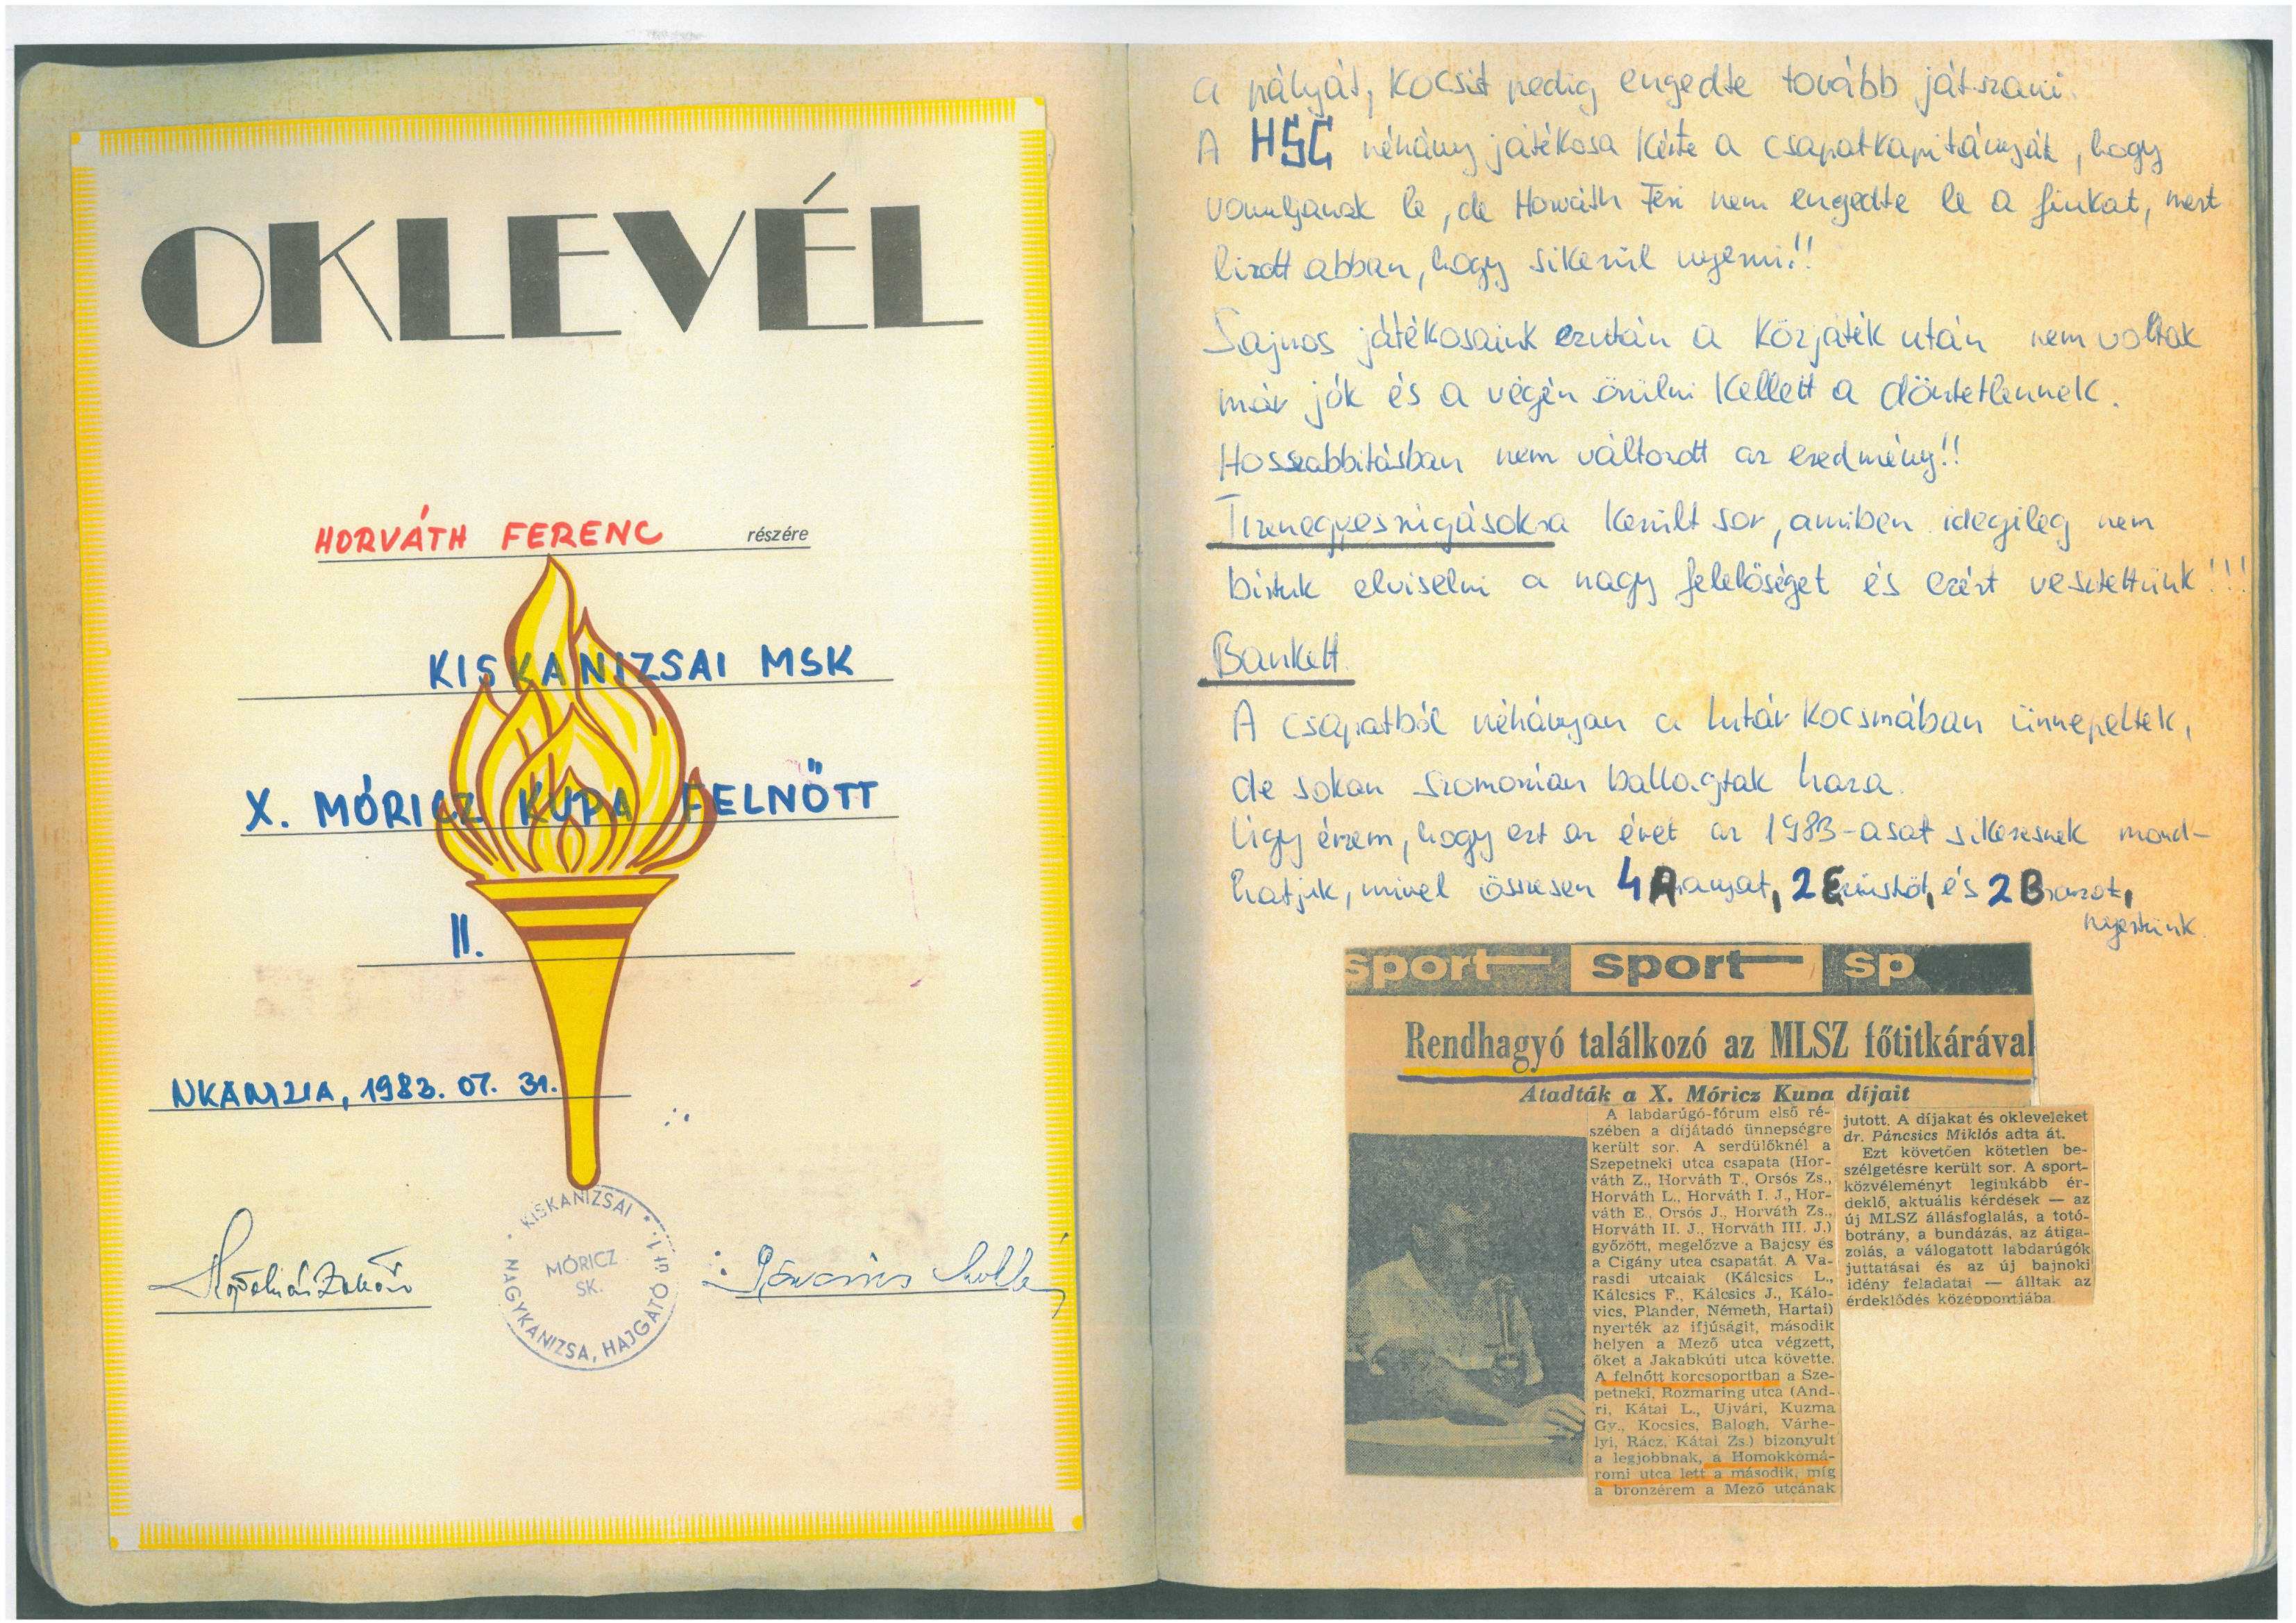 OKLEVÉL
HORVÁTH FERENC részére
KISKANIZSAI MSK
X. MÓRICZ KUPA FELNŐTT
II.
NKANIZSA, 1983. 07. 31.
KISKANIZSAI
MÓRICZ
SK.
NAGYKANIZSA, HAJGATÓ úti 1.
a pályát, Kocsit pedig engedte tovább játszani.
A HSC néhány játékosa kérte a csapatkapitányát, hogy
vonuljanak le, de Horváth Feri nem engedte le a fiukat, mert
bizott abban, hogy sikerül nyerni!!
Sajnos játékosaink ezután a közjáték után nem voltak
már jók és a végén örülni kellett a döntetlennek.
Hosszabbitásban nem változott az eredmény!!
Tizenegyesrúgásokra került sor, amiben idegileg nem
birtuk elviselni a nagy felelőséget és ezért vesztettünk!!!
Bankett.
A csapatból néhányan a kocsmában ünnepeltek,
de sokan szomorúan ballagtak haza.
Úgy érzem, hogy ezt az évet az 1983-asat sikeresnek mond-
hatjuk, mivel összesen 4 Aranyat, 2 Ezüstöt, és 2 Bronzot,
nyertünk.
sport sport sp
Rendhagyó találkozó az MLSZ főtitkárával
Átadták a X. Móricz Kupa díjait
A labdarúgó-fórum első ré-
szében a díjátadó ünnepségre
került sor. A serdülőknél a
Szepetneki utca csapata (Hor-
váth Z., Horváth T., Orsós Zs.,
Horváth L., Horváth I. J., Hor-
váth E., Orsós J., Horváth Zs.,
Horváth II. J., Horváth III. J.)
győzött, megelőzve a Bajcsy és
a Cigány utca csapatát. A Va-
rasdi utcaiak (Kálcsics L.,
Kálcsics F., Kálcsics J., Kálo-
vics, Plander, Németh, Hartai)
nyerték az ifjúságit, második
helyen a Mező utca végzett,
őket a Jakabkúti utca követte.
A felnőtt korcsoportban a Sze-
petneki, Rozmaring utca (And-
ri, Kátai L., Ujvári, Kuzma
Gy., Kocsics, Balogh, Várhe-
lyi, Rácz, Kátai Zs.) bizonyult
a legjobbnak, a Homokkomá-
romi utca lett a második, míg
a bronzérem a Mező utcának
jutott. A díjakat és okleveleket
dr. Páncsics Miklós adta át.
Ezt követően kötetlen be-
szélgetésre került sor. A sport-
közvéleményt leginkább ér-
deklő, aktuális kérdések — az
új MLSZ állásfoglalás, a totó-
botrány, a bundázás, az átiga-
zolás, a válogatott labdarúgók
juttatásai és az új bajnoki
idény feladatai — álltak az
érdeklődés középpontjába.